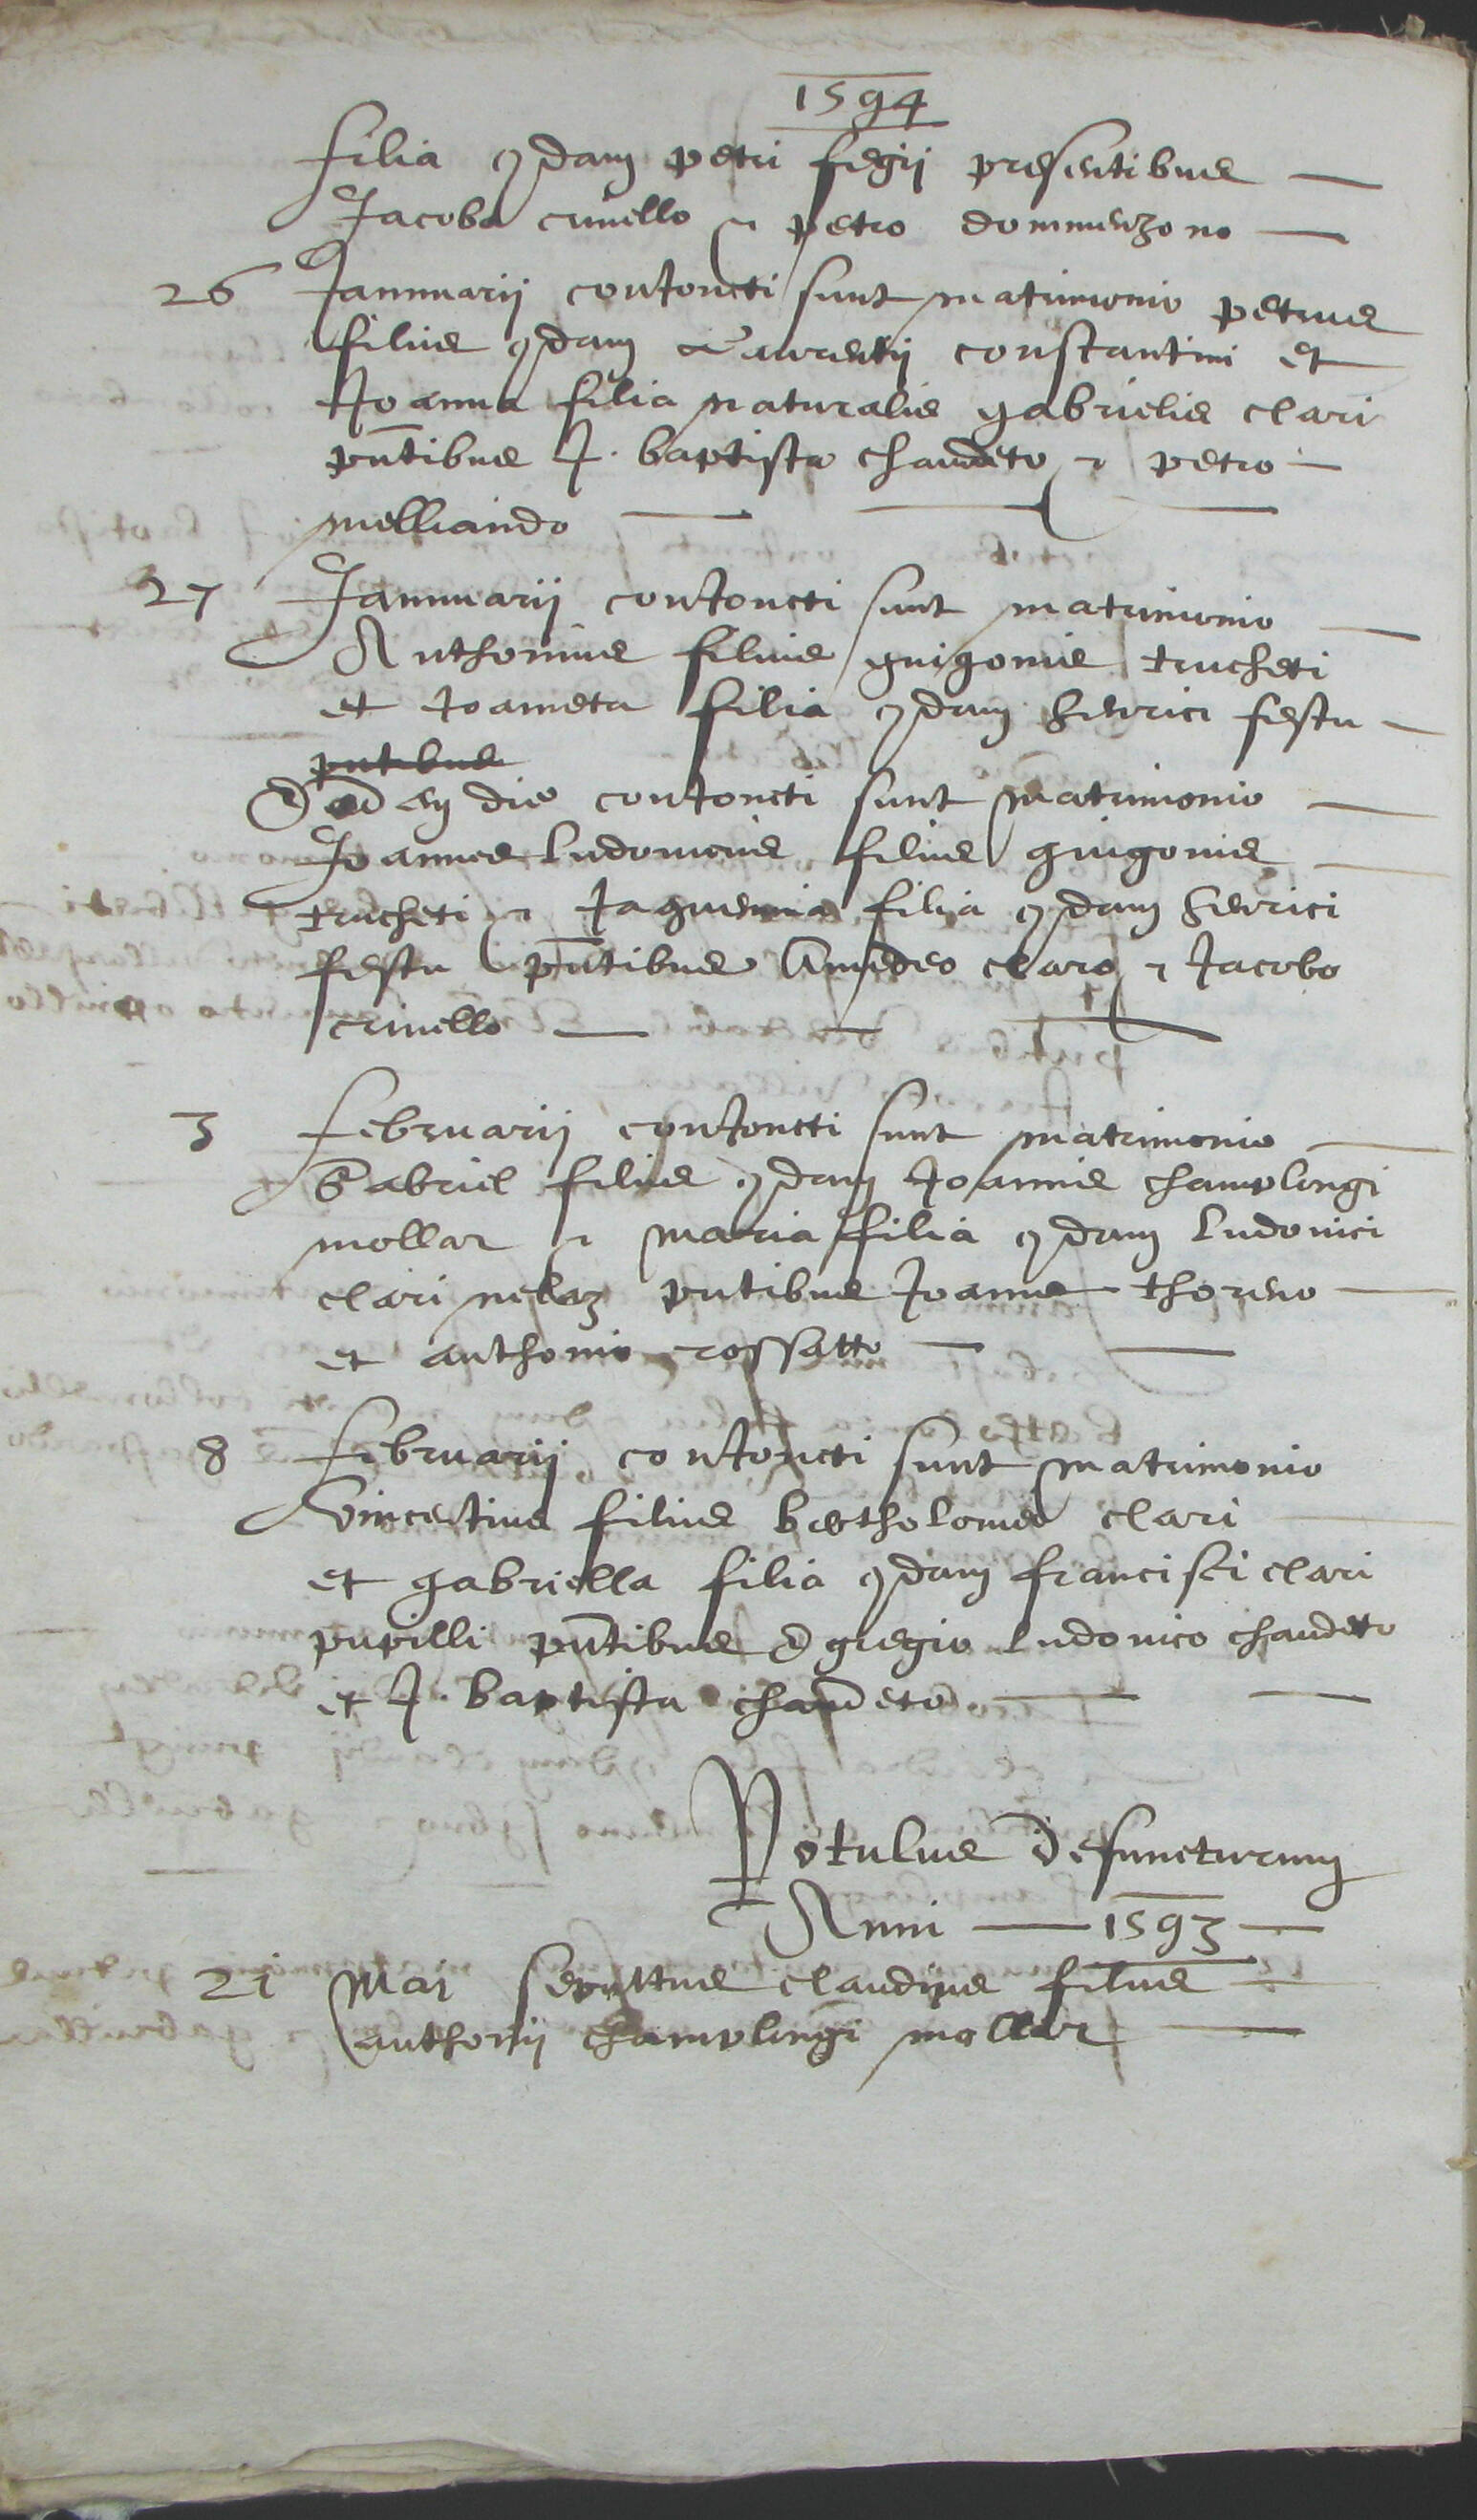 1594
filia qdam petri fegii presentibus
Jacobo crinello et petro dommenzono
26 Jannuarii contoncti sunt matrimonio petrus
filius qdam Laurentii constantini et
Joanna filia naturalis gabrielis clari
pntibus J. baptista chaudeto et petro
melliando
27 Jannuarii contoncti sunt matrimonio
Anthonius filius guigonis trucheti
et Joaneta filia qdam henrici festu
pntibus
Eadem die contoncti sunt matrimonio
Joannes ludovicus filius guigonis
trucheti et Jaquemia filia qdam henrici
festu pntibus Amedeo claro et Jacobo
crinello
3 februarii contoncti sunt matrimonio
Gabriel filius qdam Joannis champlongi
mollar et maria filia qdam ludovici
clari pntibus Joanne thoreno
et anthonio rossatto
8 februarii contoncti sunt matrimonio
Vincentius filius bertholomei clari
et gabriella filia qdam francisci clari
pupilli pntibus Egregio ludovico chaudeto
et J. baptista chaudeto
Rotulus defuncturum
Anni 1593
21 Maj sepultus claudius filius
anthonii champlongi mollar